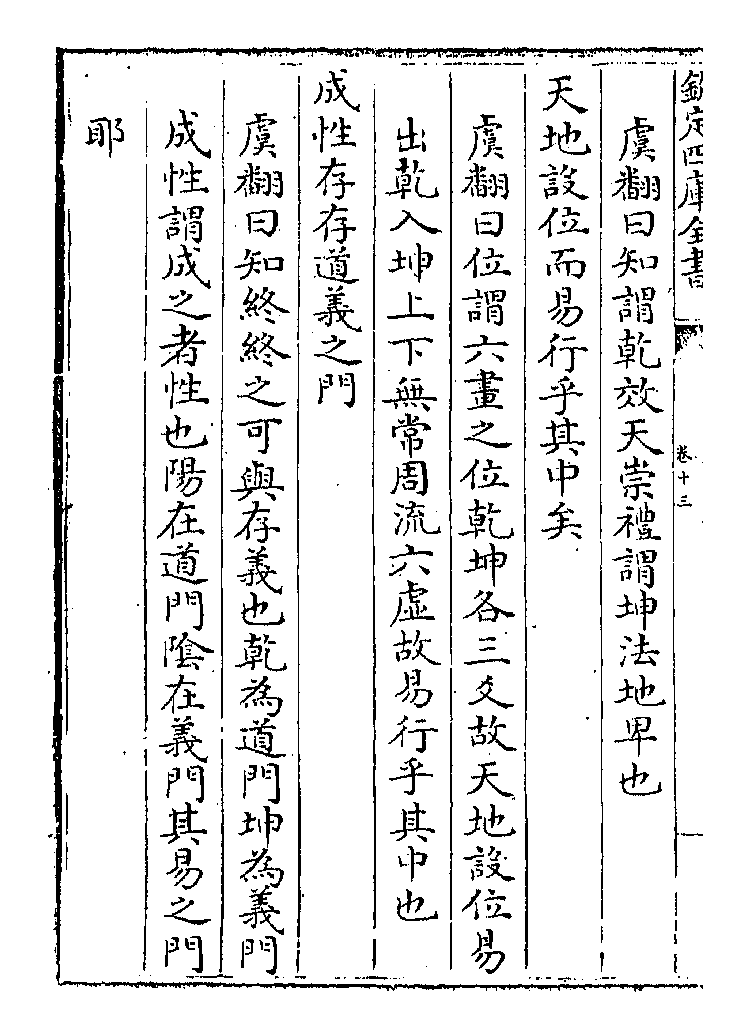 欽定四庫全書
卷十三
虞翻曰知謂乾效天崇禮謂坤法地卑也
天地設位而易行乎其中矣
虞翻曰位謂六畫之位乾坤各三爻故天地設位易
出乾入坤上下無常周流六虛故易行乎其中也
成性存存道義之門
虞翻曰知終終之可與存義也乾為道門坤為義門
成性謂成之者性也陽在道門陰在義門其易之門
耶